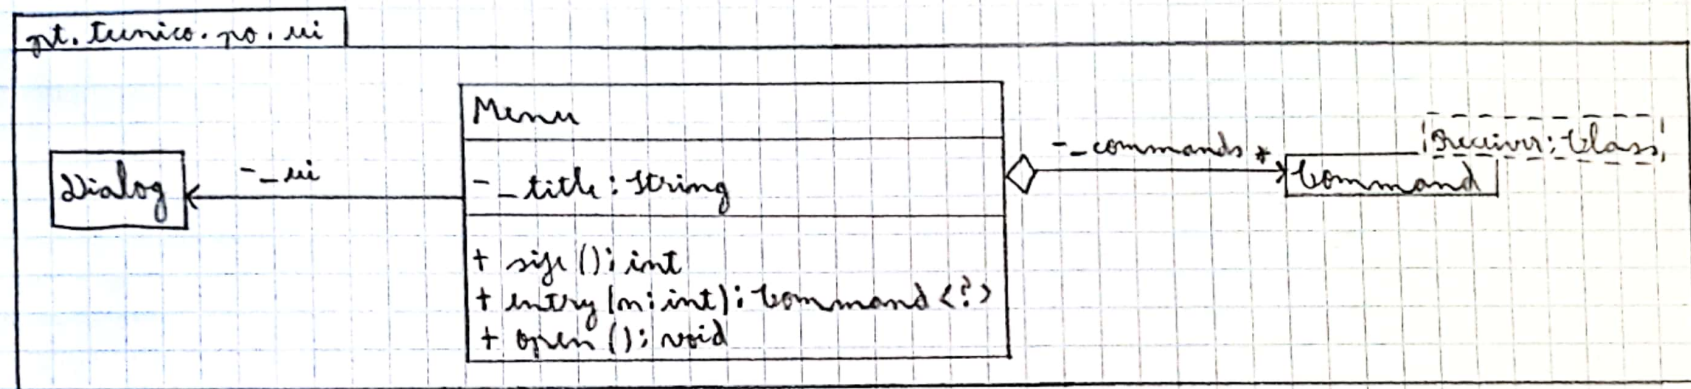 pt.tecnico.po.ui
Dialog
-_ui
Menu
-_title: String
+ size(): int
+ entry(n: int): Command<?>
+ open(): void
-_commands *
Receiver: Class
Command